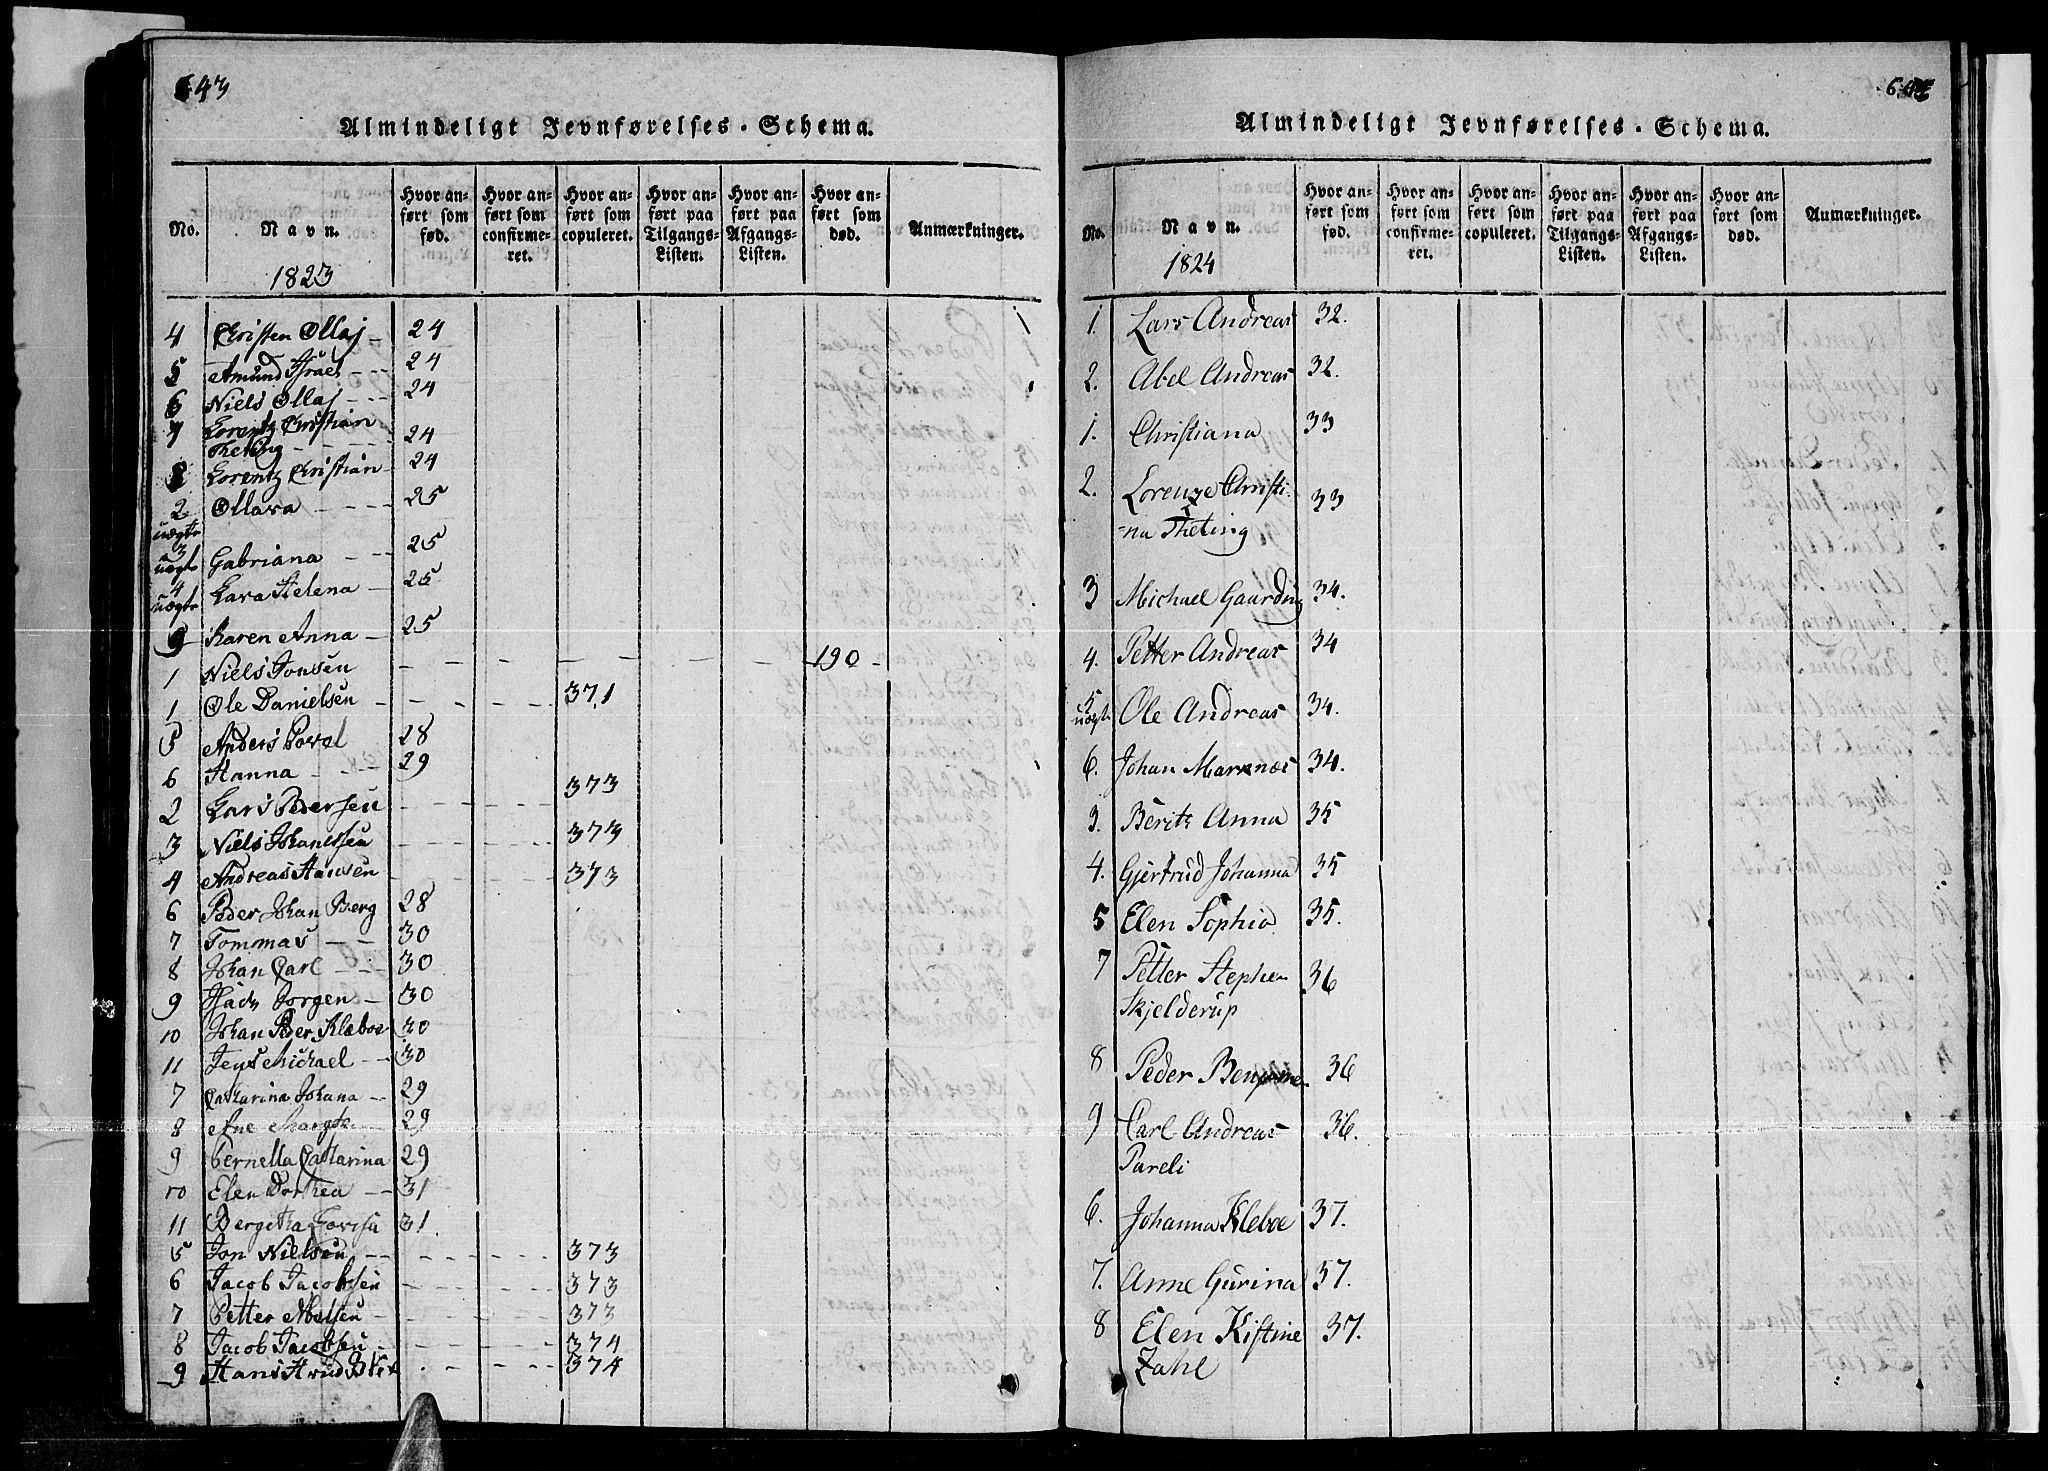 643
Almindeligt Jevnførelses-Schema.
No.
Navn.
1823
Hvor anført som fød.
Hvor anført som confirmeret.
Hvor anført som copuleret.
Hvor anført paa Tilgangs-Listen.
Hvor anført paa Afgangs-Listen.
Hvor anført som død.
Anmærkninger.
4 Christen Ollaj 24
5 Amund Israel 24
6 Niels Ollaj 24
7 Lorentz Christian
Theting 24
Lorentz Christian 24
2 uægte Ollava 25
3 uægte Gabriana 25
4 uægte Lava Helena 25
9 Karen Anna 25
1 Niels Jonsen 190
1 Ole Danielsen 371
5 Anders Povel 28
6 Hanna 29
2 Lars Pedersen 373
3 Niels Johanessen 373
4 Andreas Hansen 373
6 Peder Johan Berg 28
7 Tommas 30
8 Johan Carl 30
9 Jorgen 30
10 Johan Peder Kleboe 30
11 Jens Michael 30
7 Catharina Johana 29
8 Ane Margte 29
9 Pernella Catharina 29
10 Elen Dorthea 31
11 Bergetha 31.
5 Jon Nielsen 373
6 Jacob Jacobsen 373
7 Petter Abelsen 373
8 Jacob Jacobsen 374
9 Hans Blix 374
Almindeligt Jevnførelses-Schema.
No.
Navn.
1824
Hvor anført som fød.
Hvor anført som confirmeret.
Hvor anført som copuleret.
Hvor anført paa Tilgangs-Listen.
Hvor anført paa Afgangs-Listen.
Hvor anført som død.
Anmærkninger.
1. Lars Andreas 32.
2. Abel Andreas 32.
1. Christiana 33
2. Lorenze Christi-
=na Theting 33
3 Michael Gaarding 34.
4. Petter Andreas 34
5 uægte Ole Andreas 34.
6. Johan Marenæs 34.
3. Berith Anna 35
4. Gjertrud Johanna 35
5 Elen Sophia 35.
7 Petter Stephen
Skjelderup 36
8 Peder Benjamin 36
9 Carl Andreas 36.
Pareli
6. Johanna Kleboe 37.
7. Anne Gurina 37.
8 Elen Kistine 37.
Zahl